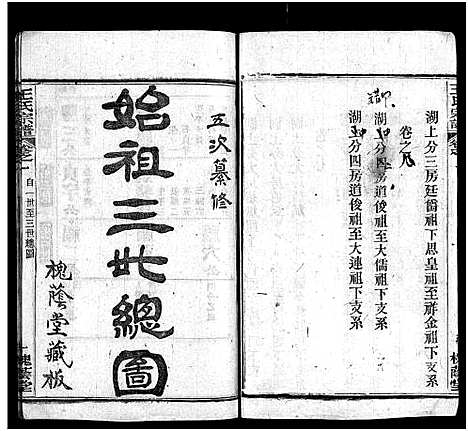 王氏宗譜
湖上分三房廷僑祖下思皇祖至祥金祖下支系
卷之八
湖上分四房道俊祖至大儒祖下支系
湖上分四房道俊祖至大連祖下支系
槐蔭堂
五次纂修
始祖三世總圖
槐蔭堂藏板
王氏宗譜
卷之一
自一世至三世總圖
一
槐蔭堂